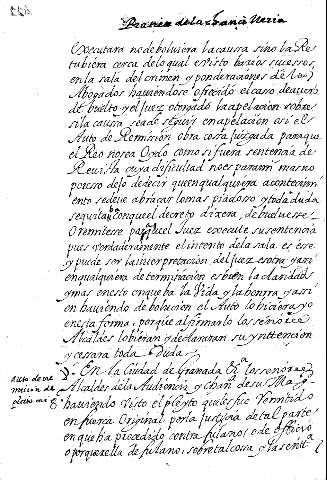 Practica de la Chancilleria
executara no debolviera la causa sino la Re
tubiera cerca de lo qual e visto barios sucessos
en la sala del crimen y ponderaciones de los
Abogados haviendose ofrecido el caso de aver
de buelto y el Juez otorgado la apelacion sobre
si la causa se a de seguir en apelacion o si el
Auto de Remision obra cosa juzgada para que
el Reo no sea oydo como si fuera sentencia de
Revista cuya dificultad no es para mi mas no
por eso dejo de decir que en qualquiera acontecim
iento se deve abraçar lo mas piadoso y toda duda
se quitaba con que el decreto dixera, debuelvese
O remitese para que el Juez execute su sentencia
pues verdaderamente el intento de la sala es ese
y puede ser la interpretacion del Juez otra y assi
en qualquiera determinacion es bien la claridad
y mas en esto en que ba la Vida y la honrra y assi
en haviendo de bolucion el Auto lo hiciera yo
en esta forma, porque al firmarlo los señores
Alcaldes lo bieran y declararan su yntencion
y cesara toda Duda
En la Ciudad de Granada los señores
Alcaldes de la Audiencia y chan de su Mag
haviendo Visto el pleyto que les fue Remitido
en fuerça Original por la Justicia de tal parte
en que ha procedido contra fulano, o de officio
o por querella de fulano, sobre tal cossa y la sent
Auto de re
mision de
pleito